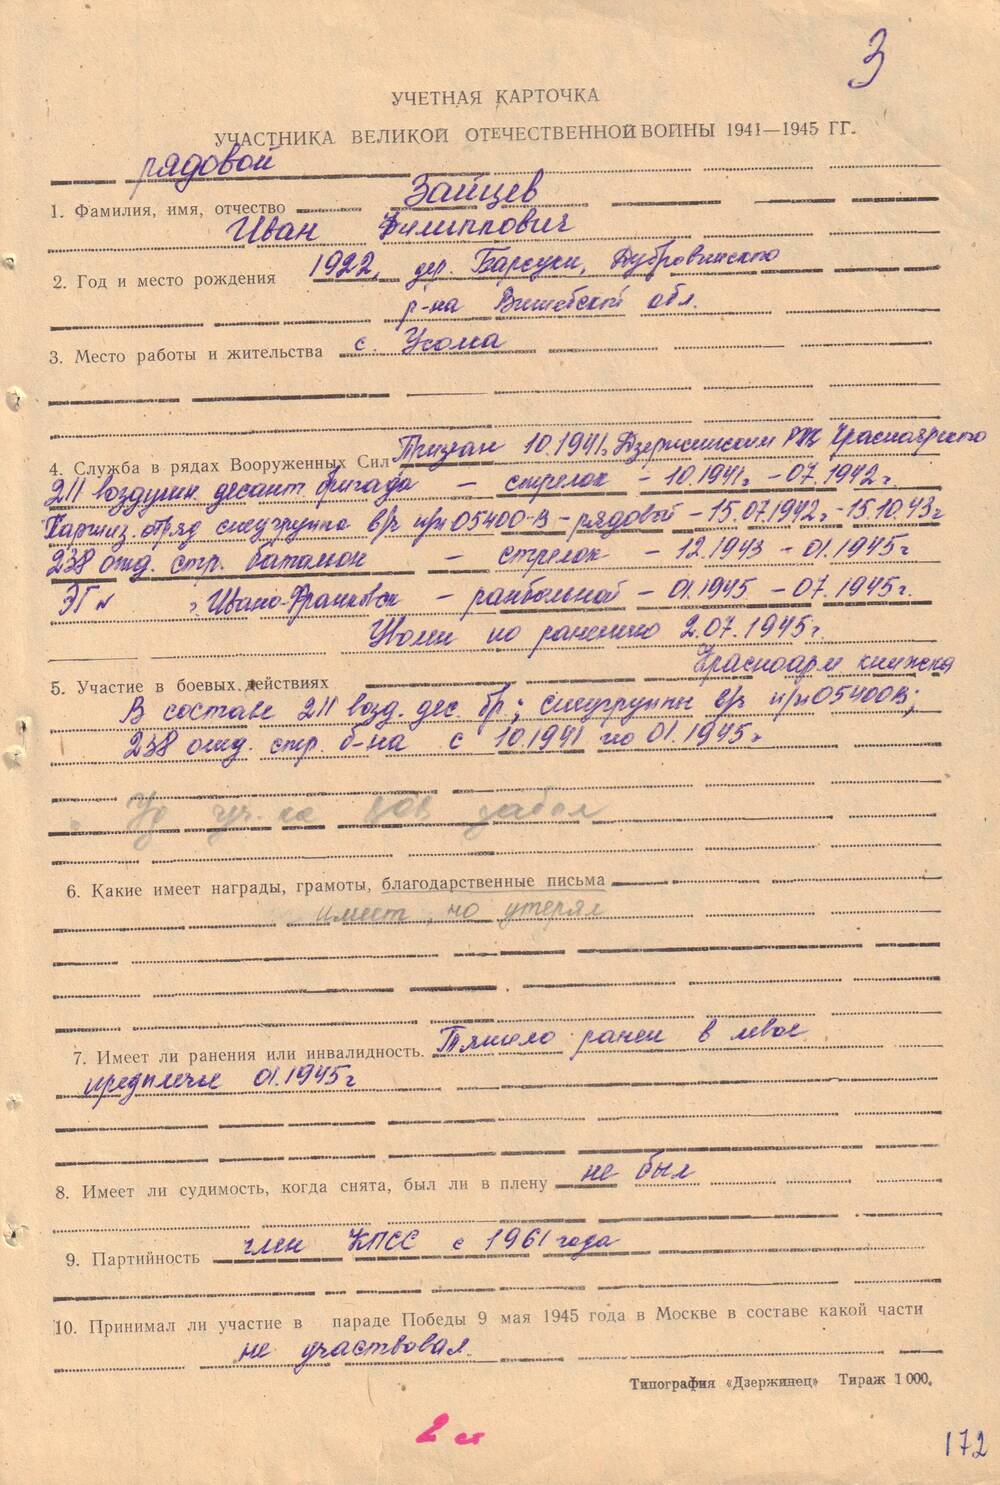 3
УЧЕТНАЯ КАРТОЧКА
УЧАСТНИКА ВЕЛИКОЙ ОТЕЧЕСТВЕННОЙ ВОЙНЫ 1941—1945 ГГ.
рядовой
1. Фамилия, имя, отчество Зайцев
Иван Филиппович
2. Год и место рождения 1922, дер. Барсуки, Дубровинского
р-на Витебской обл.
3. Место работы и жительства с. Ухома
4. Служба в рядах Вооруженных Сил Призван 10.1941г. Дзержинским РВК Красноярского
211 воздушн. десант. бригада — стрелок — 10.1941г. — 07.1942г.
Партиз. отряд спецгруппа в/ч п/п 05400-В — рядовой — 15.07.1942г. — 15.10.43г
238 отд. стр. батальон — стрелок — 12.1943 — 01.1945г
ЭГ № , Ивано-Франковск — ранбольной — 01.1945 — 07.1945г.
Уволен по ранению 2.07.1945г.
5. Участие в боевых действиях Красноарм. книжка
В составе 211 возд. дес. бр; спецгруппы в/ч п/п 05400В;
238 отд. стр. б-на с 10.1941 по 01.1945г
Уд уч-ка ВОВ
6. Какие имеет награды, грамоты, благодарственные письма
имеет, но утерял
7. Имеет ли ранения или инвалидность. Тяжело ранен в левое
предплечье 01.1945г
8. Имеет ли судимость, когда снята, был ли в плену не был
9. Партийность член КПСС с 1961 года
10. Принимал ли участие в параде Победы 9 мая 1945 года в Москве в составе какой части
не участвовал.
Типография «Дзержинец» Тираж 1 000.
2 ст
172